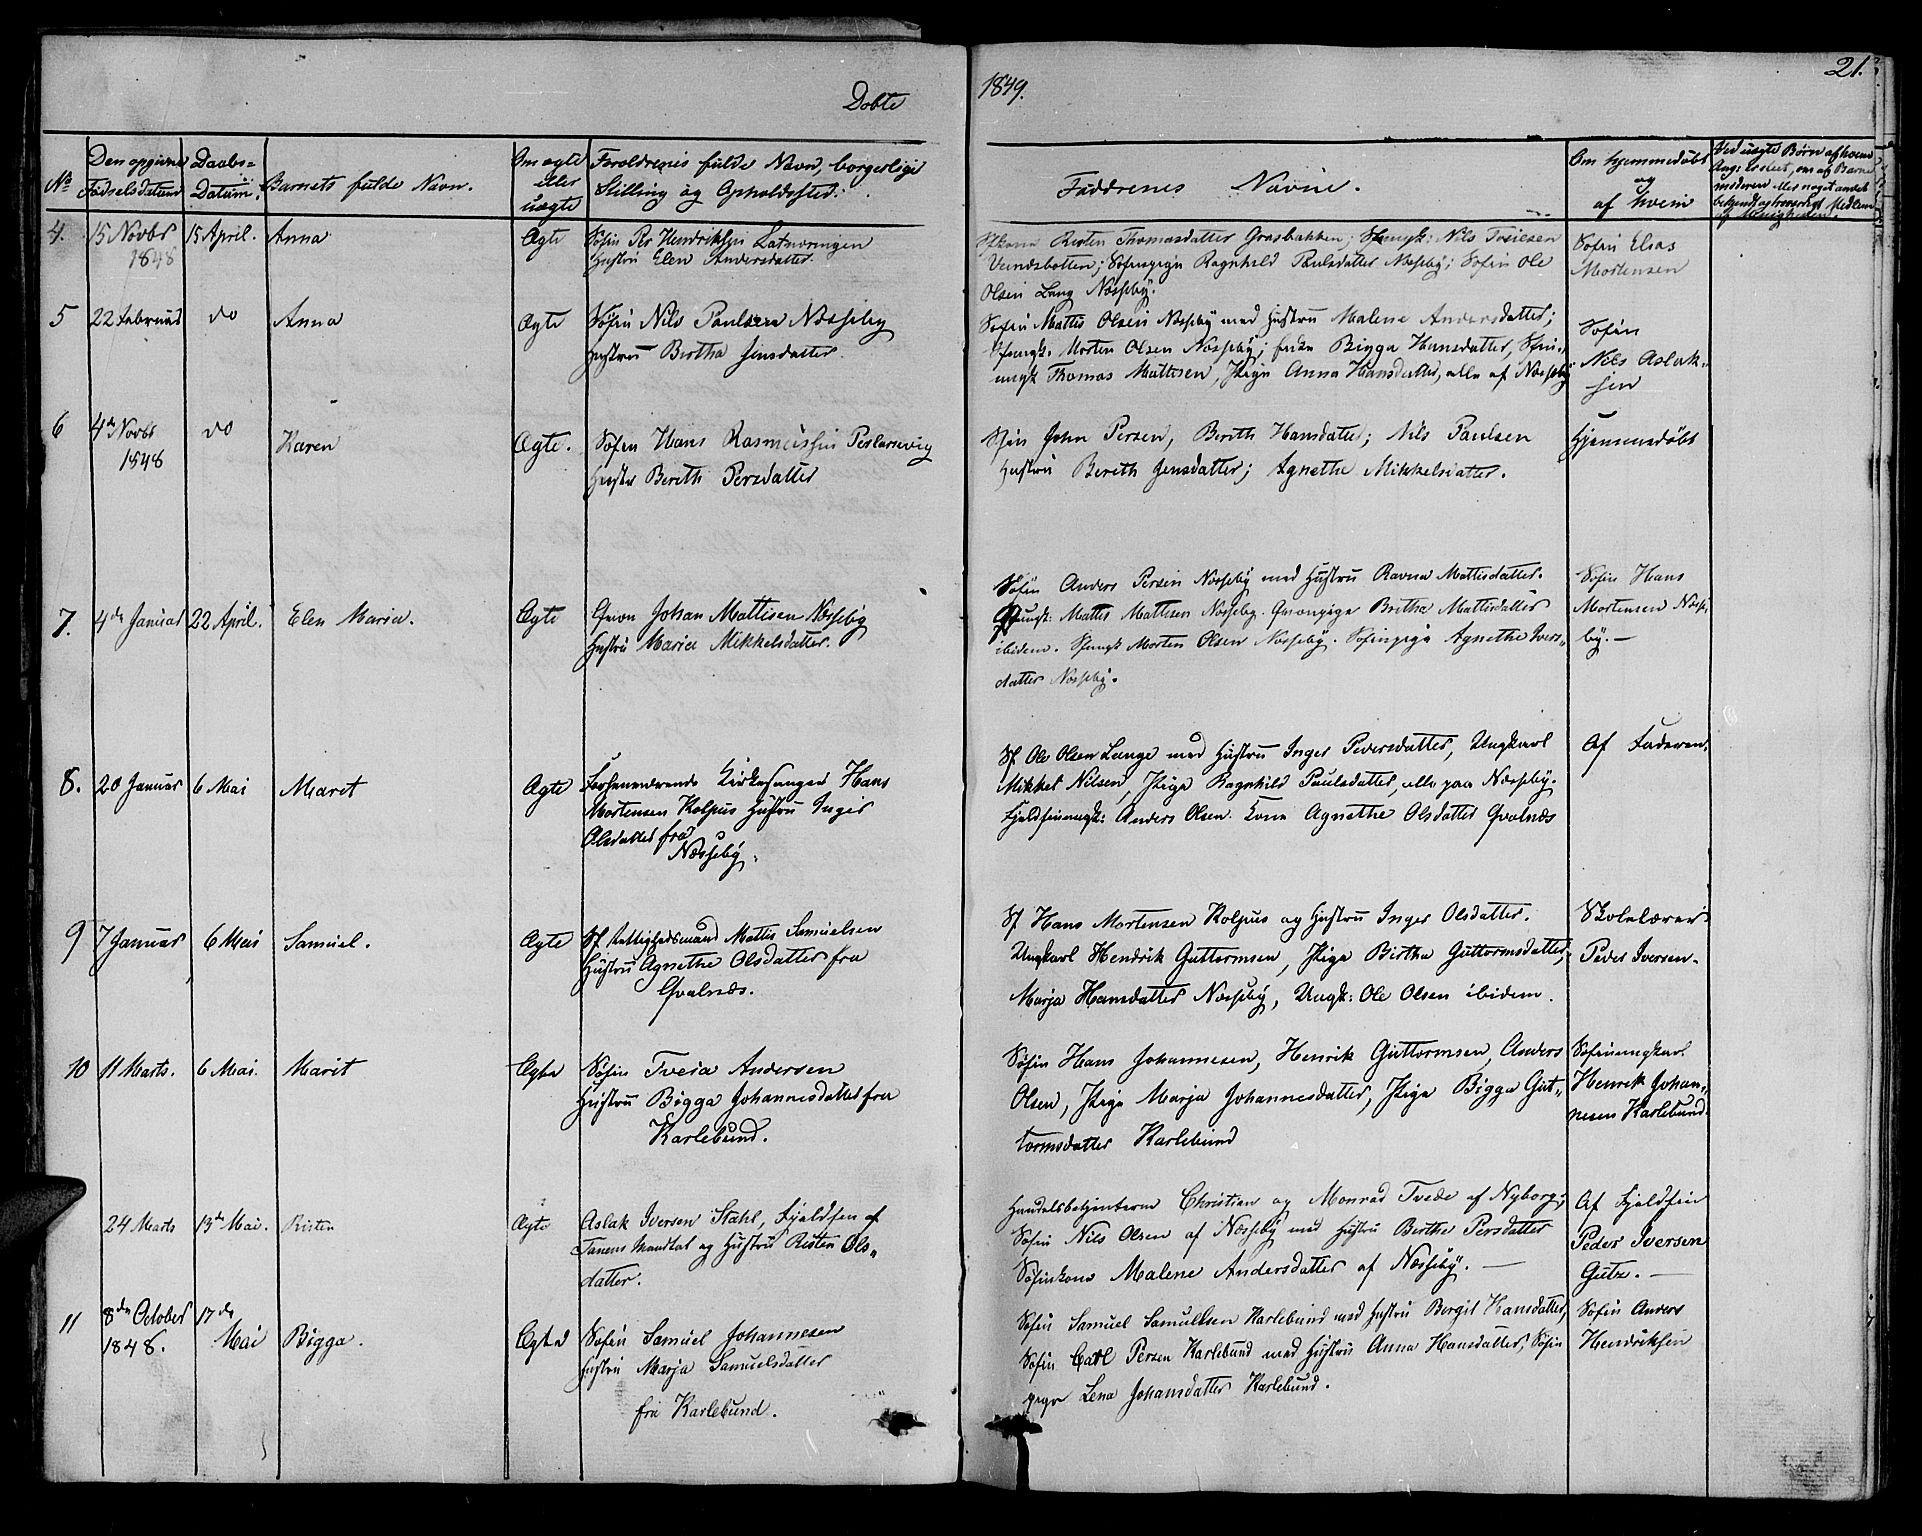 Døbte 1849. 21.
No
Den opgivne Fødselsdatum
Daabs-Datum.
Barnets fulde Navn.
Om ægte eller uægte
Forældrenes fulde Navn, borgerlige Stilling og Opholdssted.
Faddrenes Navne.
Om hjemmedøbt og af hvem
4. 15 Novbr 1848 15 April. Anna Ægte
Søfin Per Hendriksen
Hustru Elen Andersdatter
Risten Thomasdatter Græsbakken; Nils
Ragnhild Paulsdatter Næsseby; Søfin Ole
Olsen Lang Næsseby.
Søfin Elias
Mortensen
5 22 Februar do Anna Ægte
Søfin Nils Paulsen Næsseby
Hustru Birtha Jensdatter.
Søfin Mattis Olsen Næsseby med Hustru Malene Andersdatter;
Morten Olsen Næsseby; Enke Bigga Hansdatter,
Thomas Mattisen, Pige Anna Hansdatter, alle af Næsseby
Søfin
Nils Aslak-
sen
6 4de Novbr 1848 do Karen Ægte.
Søfin Hans Rasmussen
Hustru Berith Persdatter
Sfin John Persen, Berith Hansdatter; Nils Paulsen
Hustru Bereth Jensdatter; Agnethe Mikkelsdatter.
Hjemmedøbt
7. 4de Januar 22 April. Elen Maria. Ægte
Johan Mattisen Næsseby
Hustru Maria Mikkelsdatter.
Søfin Anders Persen Næsseby med Hustru Ravna Mattisdatter.
Mattis Mattisen Næsseby. Birtha Mattisdatter
ibidem. Morten Olsen Næsseby. Søfinpige Agnethe Ivers-
datter Næsseby.
Søfin Hans
Mortensen Næsse-
by. —
8. 20 Januar 6 Mai Maret Ægte
Forhenværende Kirkesanger Hans
Mortensen Kolpus Hustru Inger
Olsdatter fra
Næsseby.
Sf Ole Olsen Lange med Hustru Inger Pedersdatter, Ungkarl
Mikkel Nilsen, Pige Ragnhild Paulsdatter, alle paa Næsseby.
Fjeldfinungk: Anders Olsen. Kone Agnethe Olsdatter Qvalnæs
Af Faderen.
9 7 Januar 6 Mai Samuel. Ægte
Sf Rettighedsmand Mattis Samuelsen
Hustru Agnethe Olsdatter fra
Qvalnæs.
Sf Hans Mortensen Kolpus og Hustru Inger Olsdatter.
Ungkarl Hendrik Guttormsen, Pige Birtha Guttormsdatter,
Marja Hansdatter Næsseby, Ungk: Ole Olsen ibidem.
Skolelærer
Peder Iversen.
10 11 Marts. 6 Mai. Marit Ægte
Søfin Tveia Andersen
Hustru Bigga Johannesdatter fra
Karlebund.
Søfin Hans Johannesen, Henrik Guttormsen, Anders
Olsen, Pige Marja Johannesdatter, Pige Bigga Gut-
tormsdatter Karlebund
Søfinungkarl
Henrik Johan-
nesen Karlebund
24 Marts 13de Mai. Risten Ægte
Aslak Iversen Stahl, Fjeldfin af
Tanens Mandtal og Hustru Risten Ols-
datter.
Handelsbetjenterne Christian og Monrad Tvede af Nyborg;
Søfin Nils Olsen af Næsseby med Hustru Birthe Persdatter
Søfinkone Malene Andersdatter af Næsseby. —
Af Fjeldfin
Peder Iversen
Gutz. —
11 8de October 1848. 17de Mai Bigga. Ægte
Søfin Samuel Johannesen
Hustru Marja Samuelsdatter
fra Karlebund.
Søfin Samuel Samuelsen Karlebund med Hustru Bergit Hansdatter,
Søfin Carl Persen Karlebund med Hustru Anna Hansdatter, Søfin
pige Lena Johansdatter Karlebund.
Søfin Anders
Hendriksen